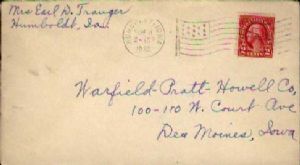 Mrs Earl D. Trauger
Humboldt, Ia.
Warfield-Pratt-Howell Co,
100-110 W. Court Ave
Des Moines, Iowa